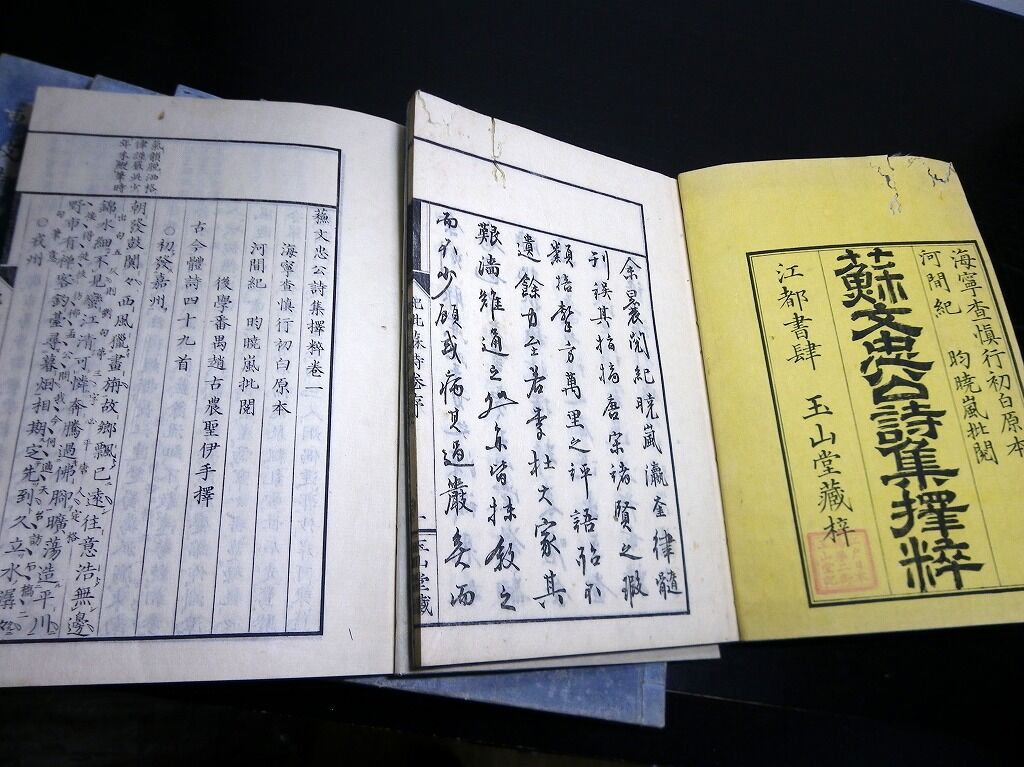 海寧查慎行初白原本
河間紀　昀曉嵐批閱
蘇文忠公詩集擇粹
江都書肆　玉山堂藏梓
余曩閱紀曉嵐瀛奎律髓
刊誤其指摘唐宋諸賢之瑕
類掊擊方萬里之評語殆不
遺餘力至若李杜大家其
艱濇雖通之處亦皆抹殺之
而不少顧或病其過嚴矣而
紀批蘇詩擇序
玉山堂藏
蘇文忠公詩集擇粹卷一
海寧查慎行初白原本
河間紀　昀曉嵐批閱
後學番禺趙古農聖伊手擇
古今體詩四十九首
○初發嘉州
朝發鼓闐々西風獵畫旃故鄉飄已遠往意浩無邊
錦水細不見蠻江清可憐奔騰過佛腳曠蕩造平川
野市有禪客釣臺尋暮烟相期定先到久立水潺々